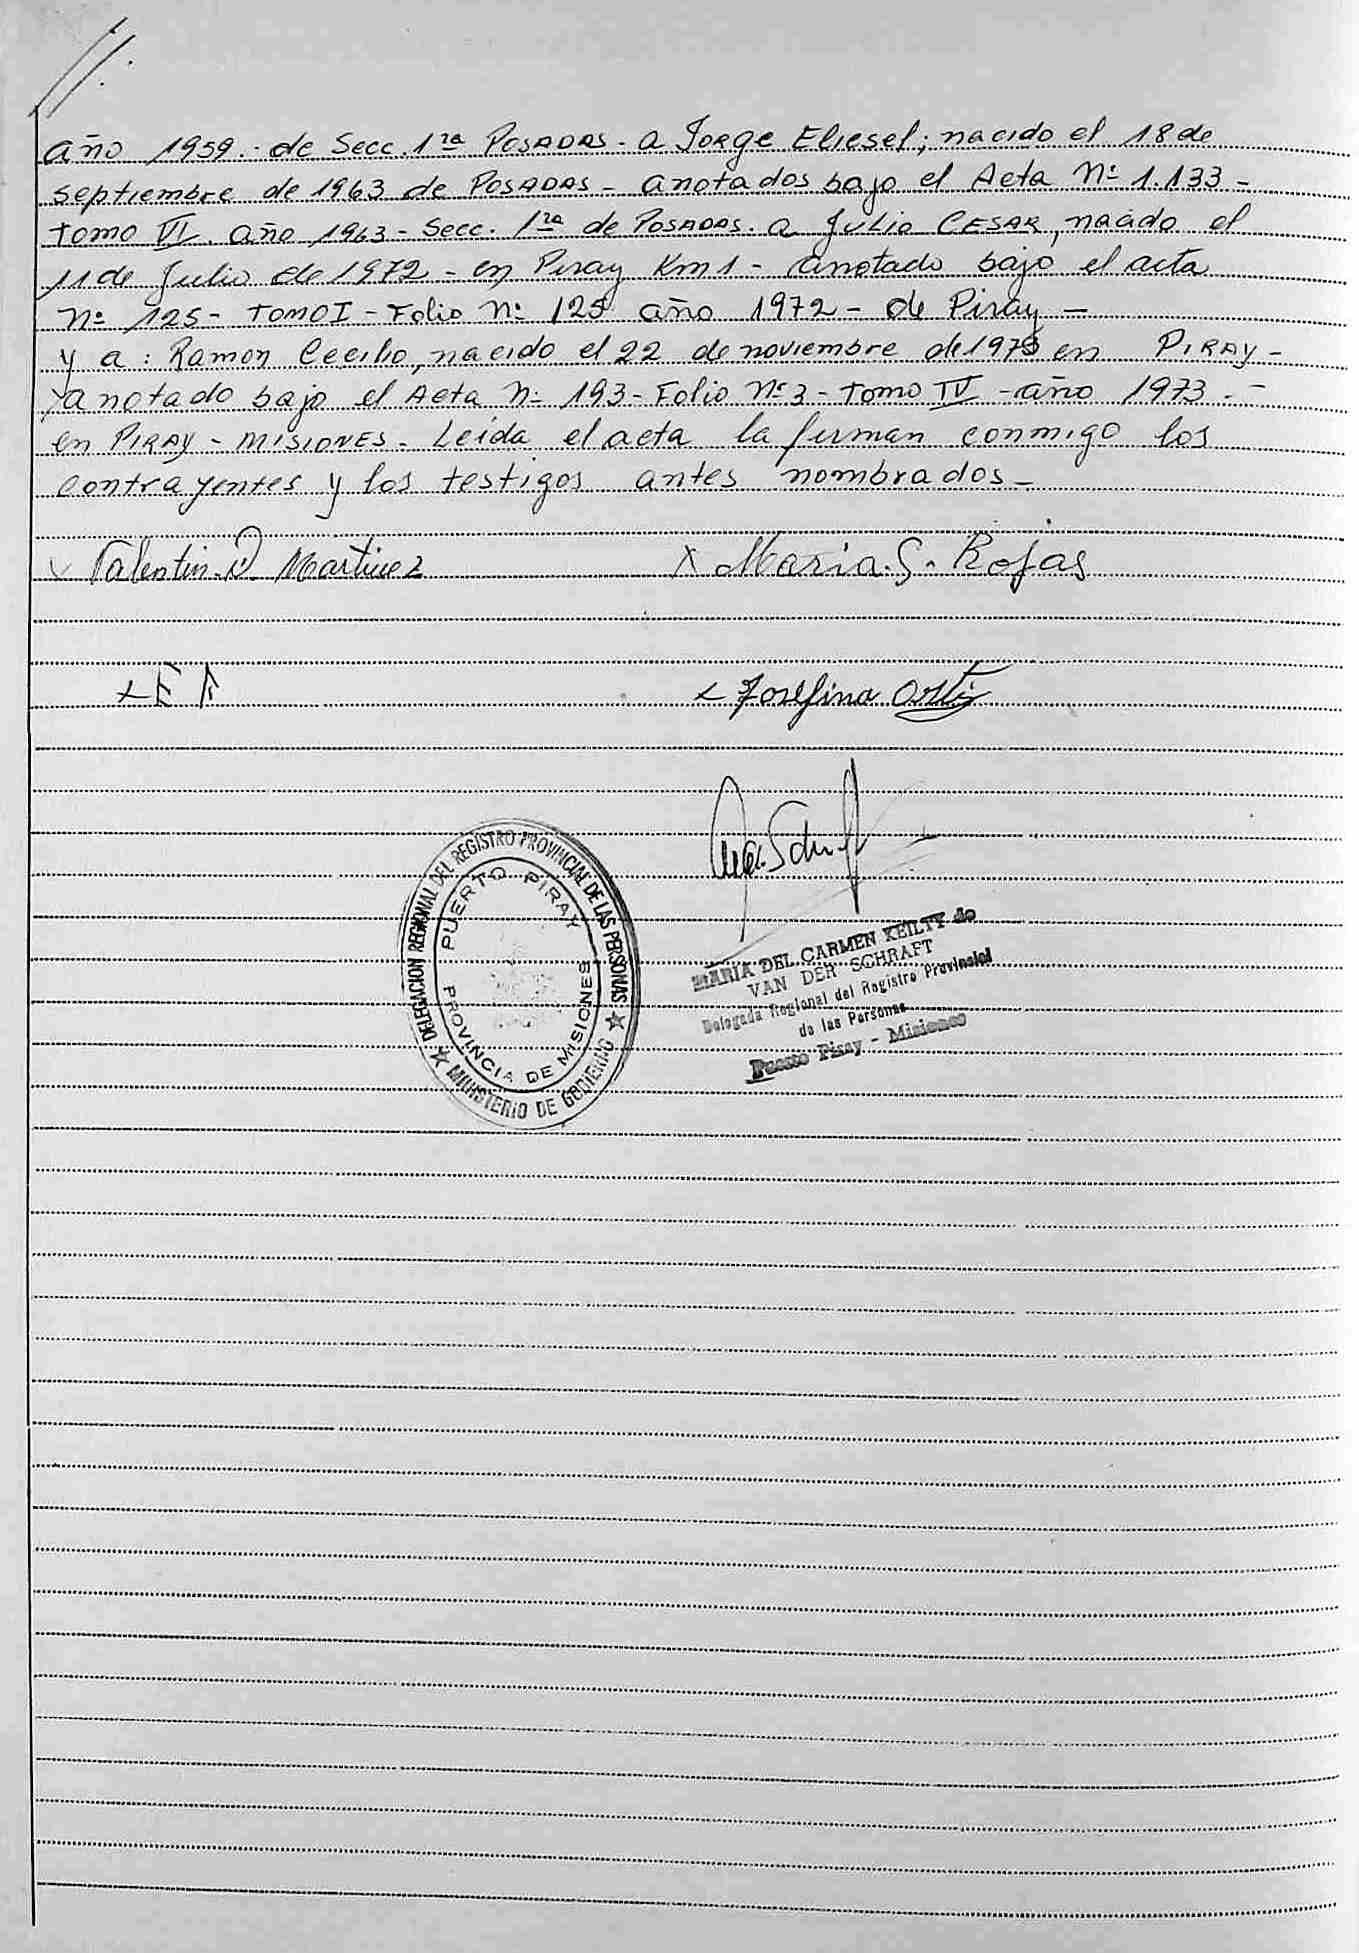 //.
año 1959.- de Secc. 1ra POSADAS - a Jorge Eliesel; nacido el 18 de
septiembre de 1963 de POSADAS - anotados bajo el Acta Nº 1.133 -
tomo VI. año 1963 - Secc. 1ra de POSADAS. a JULIO CESAR, nacido el
11 de Julio de 1972 - en Piray Km 1 - anotado bajo el acta
Nº 125 - TOMO I - Folio Nº 125 año 1972 - de Piray -
y a: Ramon Cecilio, nacido el 22 de noviembre de 1973 en PIRAY -
anotado bajo el Acta Nº 193 - Folio Nº 3 - Tomo IV - año 1973.-
en PIRAY - MISIONES - Leída el acta la firman conmigo los
contrayentes y los testigos antes nombrados -
Valentin D. Martinez X Maria. G. Rojas
Josefina Ortiz
DELEGACION REGIONAL DEL REGISTRO PROVINCIAL DE LAS PERSONAS
PUERTO PIRAY
PROVINCIA DE MISIONES
MINISTERIO DE GOBIERNO
MARIA DEL CARMEN KEILTY de
VAN DER SCHRAFT
Delegada Regional del Registro Provincial
de las Personas
Puerto Piray - Misiones